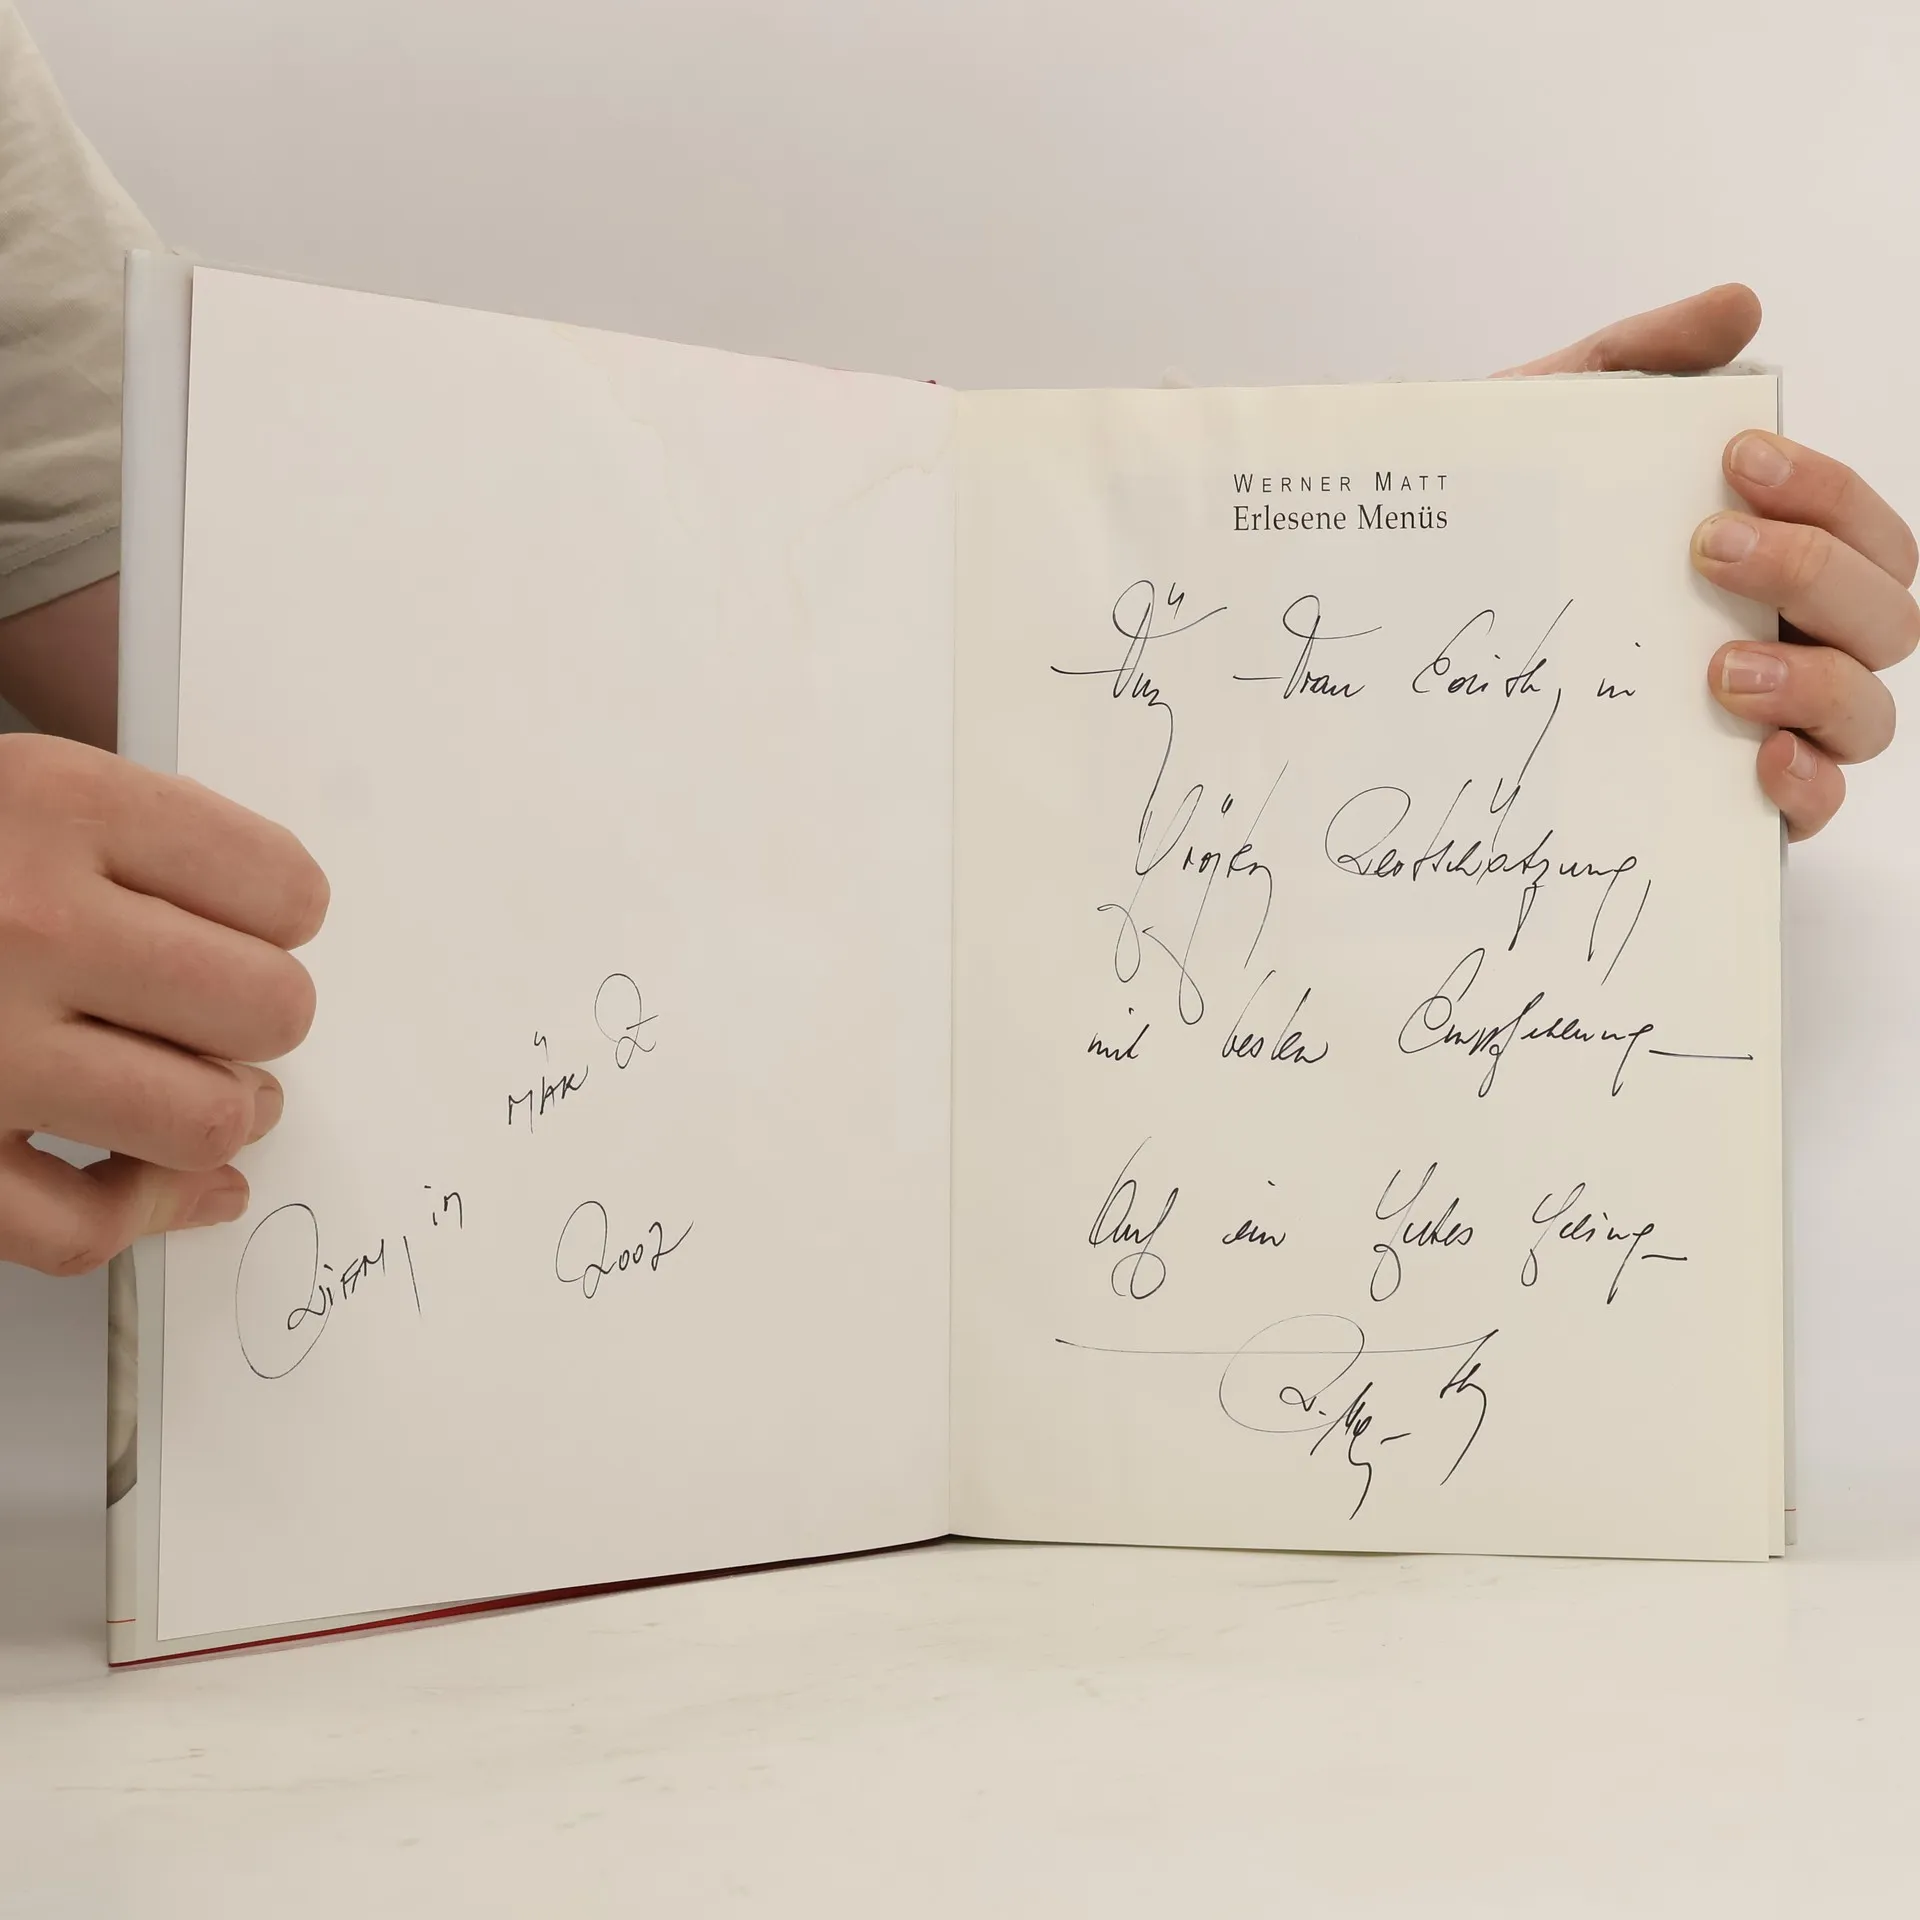 MÄRZ
WIEN, in 2002
WERNER MATT
Erlesene Menüs
Für Frau Edith, in
größter Wertschätzung,
mit besten Empfehlung
Auf ein Gutes Geling